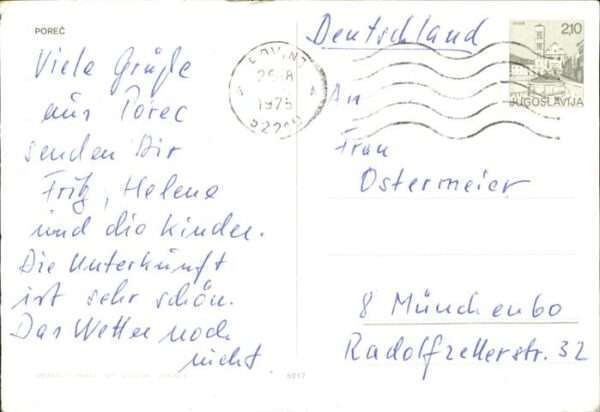 POREČ
Viele Grüße
aus Porec
senden Dir
Fritz, Helene
und die Kinder.
Die Unterkunft
ist sehr schön.
Das Wetter noch
nicht.
5217
ROVINJ
26-8
1975
52210
Deutschland
2,10
JUGOSLAVIJA
An
Frau
Ostermeier
8 München 60
Radolfzellerstr. 32